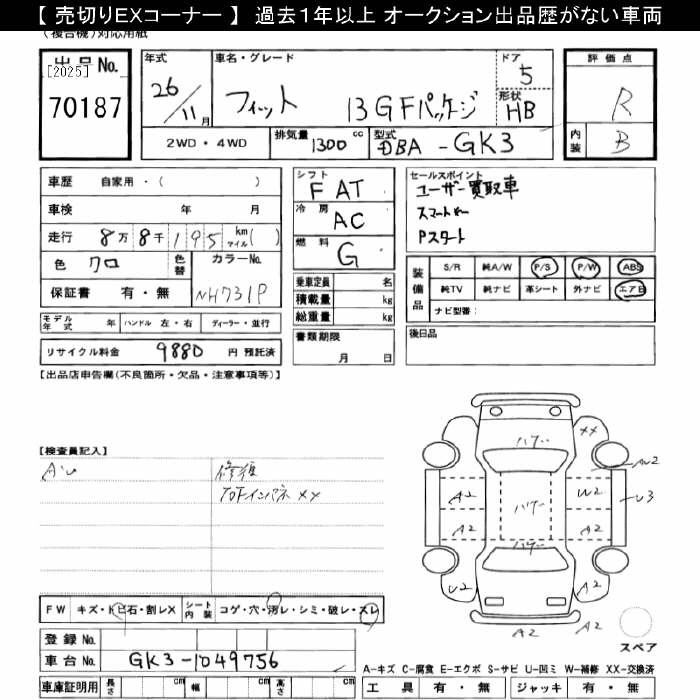 【 売切りEXコーナー 】 過去１年以上 オークション出品歴がない車両
(複合機)対応用紙
出品No.
[2025]
70187
年式
26/11月
車名・グレード
フィット 13GFパッケージ
ドア
5
形状
HB
評価点
R
内装
B
2WD・4WD
排気量 1300 cc
型式 DBA-GK3
車歴 自家用・( )
車検 年 月
走行 8万8千195 km マイル( )
色 クロ 色替 カラーNo.
保証書 有・無 NH731P
モデル年式 年 ハンドル 左・右 ディーラー・並行
リサイクル料金 9880 円 預託済
シフト
F AT
冷房
AC
燃料
G
乗車定員 名
積載量 kg
総重量 kg
書類期限
月 日
セールスポイント
ユーザー買取車
スマートキー
Pスタート
装備品
S/R 純A/W P/S P/W ABS
純TV 純ナビ 革シート 外ナビ エアB
ナビ型番：
後日品
【出品店申告欄(不良箇所・欠品・注意事項等)】
【検査員記入】
AU 修復
右Fインパネ XX
FW キズ・トビ石・割レX シート内装 コゲ・穴・汚レ・シミ・破レ・スレ
登録No.
車台No. GK3-1049756
車庫証明用 長さ cm 幅 cm 高さ cm
ハゲー
XX
AU2
A2
ハゲー
W2
U3
A2
A2
U2
A2
A2
A2
スペア
A-キズ C-腐食 E-エクボ S-サビ U-凹ミ W-補修 XX-交換済
工具 有・無 ジャッキ 有・無